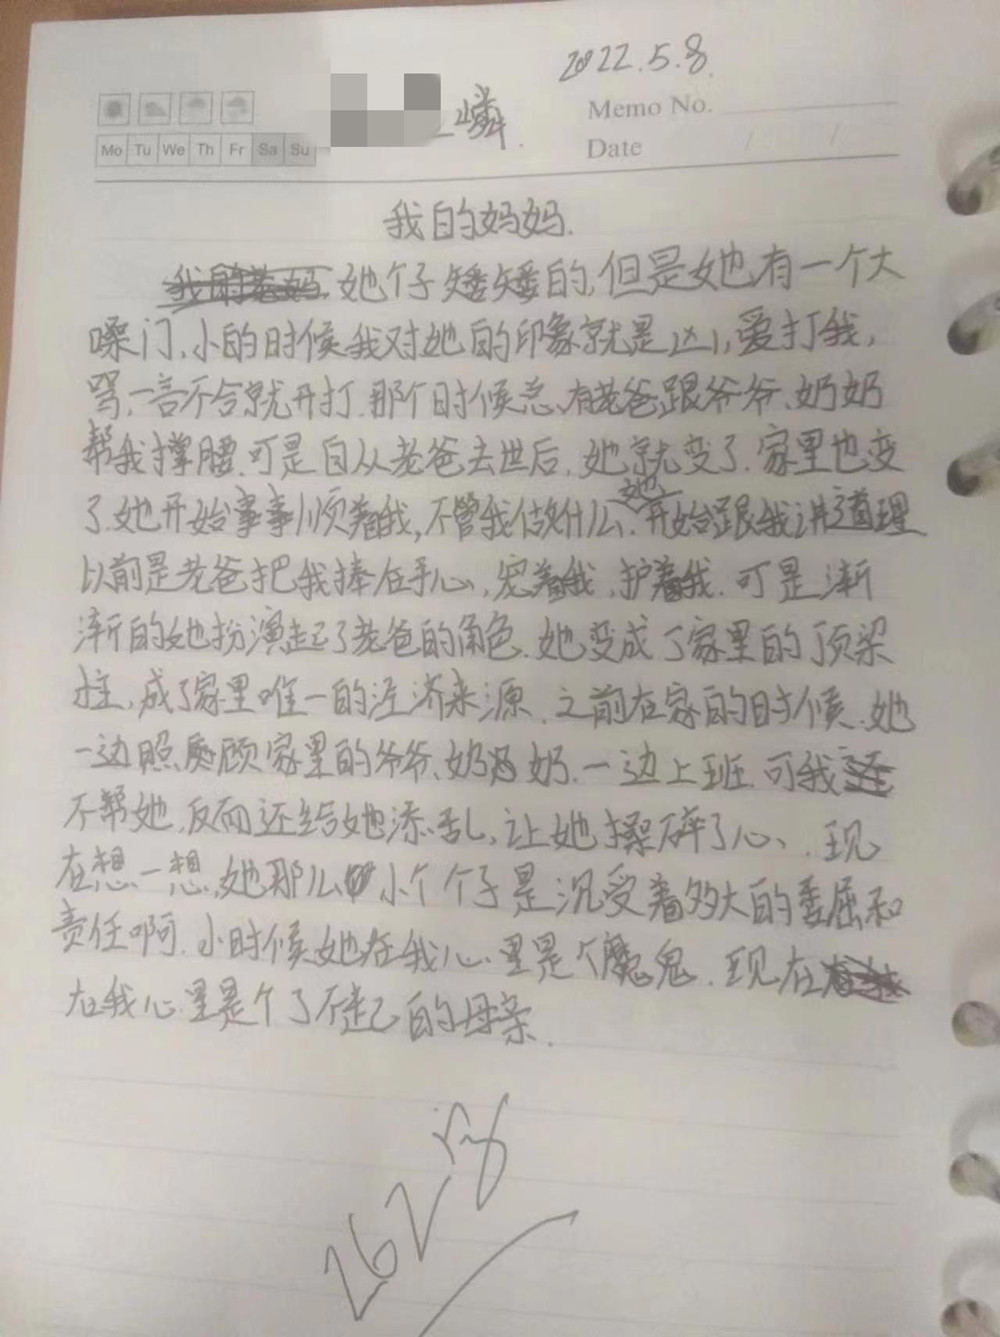 2022.5.8.
Memo No.
嶙.
Mo Tu We Th Fr Sa Su
Date
我的妈妈.
她个子矮矮的,但是她有一个大
嗓门,小的时候我对她的印象就是凶,爱打我,
骂,一言不合就开打.那个时候总有老爸跟爷爷、奶奶
帮我撑腰.可是自从老爸去世后,她就变了.家里也变
了.她开始事事顺着我,不管我做什么、她开始跟我讲道理
以前是老爸把我捧在手心,宠着我,护着我.可是渐
渐的她扮演起了老爸的角色.她变成了家里的顶梁
柱,成了家里唯一的泾济来源.之前在家的时候.她
一边照顾家里的爷爷、奶奶.一边上班.可我
不帮她,反而还给她添乱,让她操碎了心、.现
在想一想,她那么小个个子是沉受着多大的委屈和
责任啊.小时候她在我心里是个魔鬼.现在
在我心里是个了不起的母亲.
262